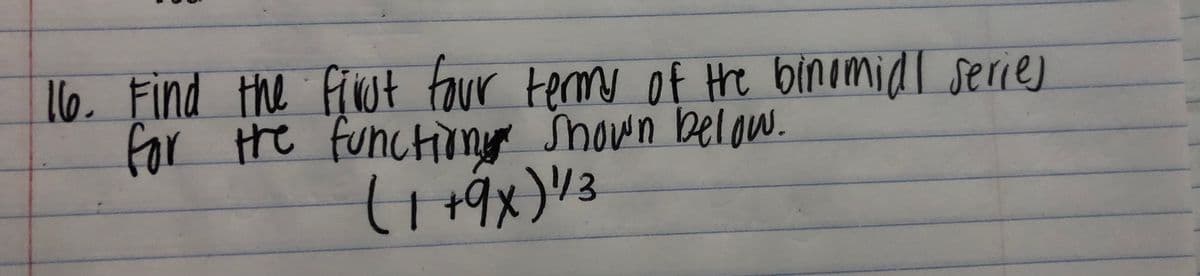 16. Find the first four terms of the binomial series
for the function shown below.
(1+9x)^1/3